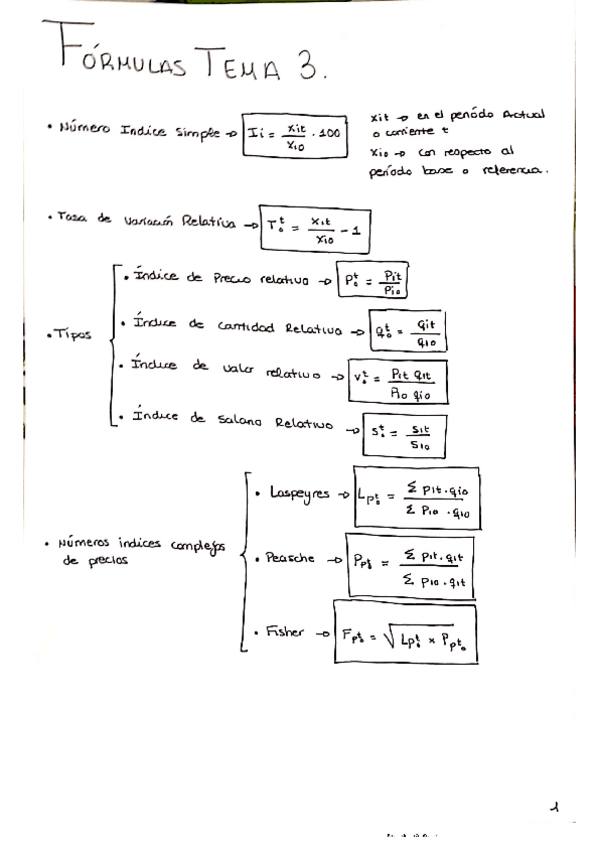 FÓRMULAS TEMA 3.
• Número Indice Simple → Ii = xit / xio · 100
xit → en el periódo Actual
o corriente t
xio → con respecto al
período base o referencia.
• Tasa de variación Relativa → T₀ᵗ = xit / xio - 1
• Tipos
• Índice de Precio relativo → P₀ᵗ = Pit / Pio
• Índice de cantidad Relativo → q₀ᵗ = qit / qio
• Índice de valor relativo → v₀ᵗ = Pit qit / Pio qio
• Índice de Salario Relativo → S₀ᵗ = Sit / Sio
• Números indices complejos
de precios
• Laspeyres → Lp₀ᵗ = Σ pit · qio / Σ pio · qio
• Peasche → Pp₀ᵗ = Σ pit · qit / Σ pio · qit
• Fisher → Fp₀ᵗ = √ Lp₀ᵗ × Pp₀ᵗ
1